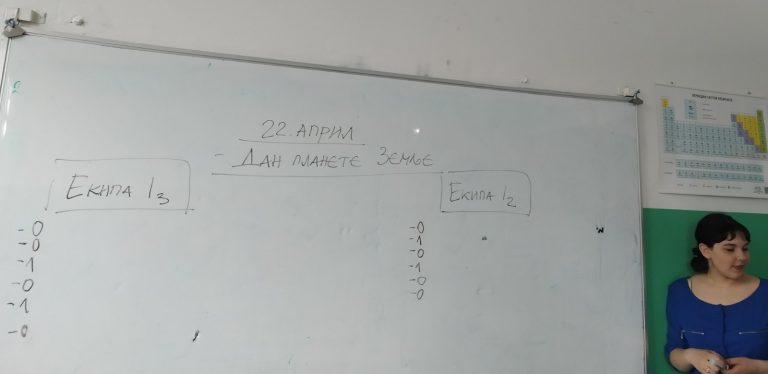 22. АПРИЛ
- ДАН ПЛАНЕТЕ ЗЕМЉЕ
ЕКИПА I3
-0
-0
-1
-0
-1
-0
ЕКИПА I2
-0
-1
-0
-1
-0
-0